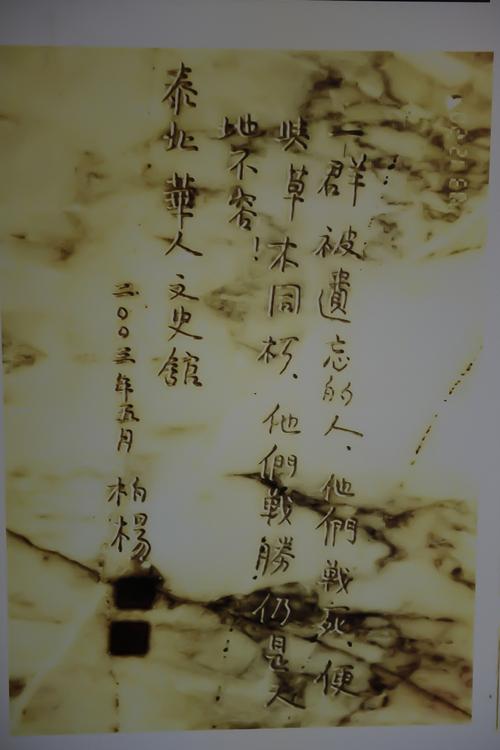 一群被遺忘的人、他們戰死、便
與草木同朽、他們戰勝、仍是天
地不容！
泰北華人文史館
二○○三年五月 柏楊